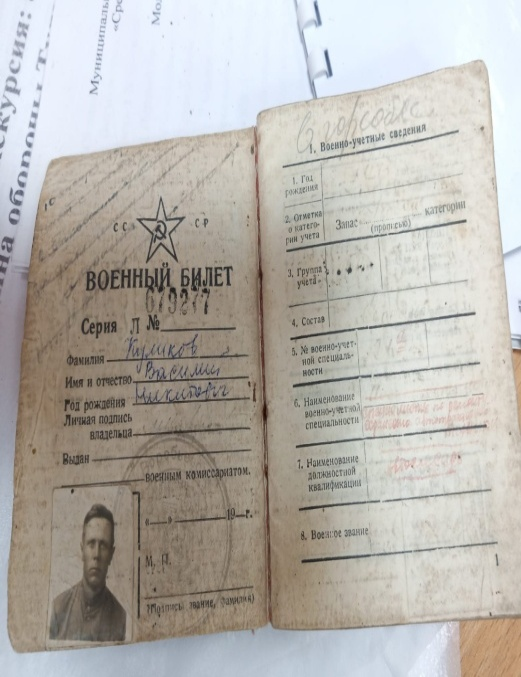 скурсия:
на обороны Т
Муниципаль
«Сре
Мо
СС СР
ВОЕННЫЙ БИЛЕТ
679277
Серия Л №
Фамилия Куликов
Имя и отчество Василий
Год рождения Никитович
Личная подпись
владельца
Выдан
военным комиссариатом.
« » 19 г.
М. П.
(Подпись, звание, фамилия)
1. Военно-учетные сведения
1. Год
рождения
2. Отметка
о катего-
рии учета
Запас категории
(прописью)
3. Группа
учета
4. Состав
5. № военно-учет-
ной специаль-
ности
6. Наименование
военно-учетной
специальности
7. Наименование
должностной
квалификации
8. Военное звание
1